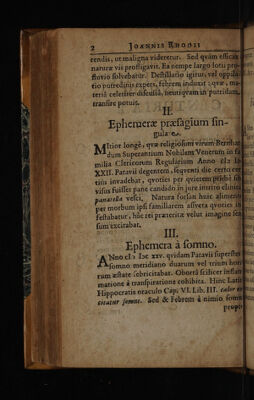 2 JOANNIS RHODII
tendis, ut maligna videretur. Sed quâm efficax
naturæ vis profligavit. Ea nempe largo lotii pro-
fluvio solvebatur. Destillatio igitur, vel oppila-
tio putredinis expers, febrem induxit: quæ, ma-
teriâ celeriter discussâ, neutiquam in putridam
transire potuit.
II.
Ephemeræ præsagium sin-
gulare.
Mitior longè, quæ religiosum virum
dum Superantium Nobilem Venetum in fa-
milia Clericorum Regularium Anno
XXII. Patavii degentem, sequenti die certò cer-
tius invadebat, quoties per quietem sibi
visus fuisset pane candido in jure instito clinicis
panatella vesci, Natura forsan huic alimento
per morbum ipsi familiarem assveta quoties in
festabatur, hûc rei præteritæ velut imagine sen
sum excitabat.
III.
Ephemera à somno.
ANno XXV. quidam Patavii superstes
somno meridiano duarum vel trium hora
rum æstate febricitabat. Obortâ scilicet inflam
matione à transpiratione cohibita. Hinc Latii
Hippocratis oraculo Cap. VI. Lib. III. calor
citatur somno. Sed & Febrem à nimio somno